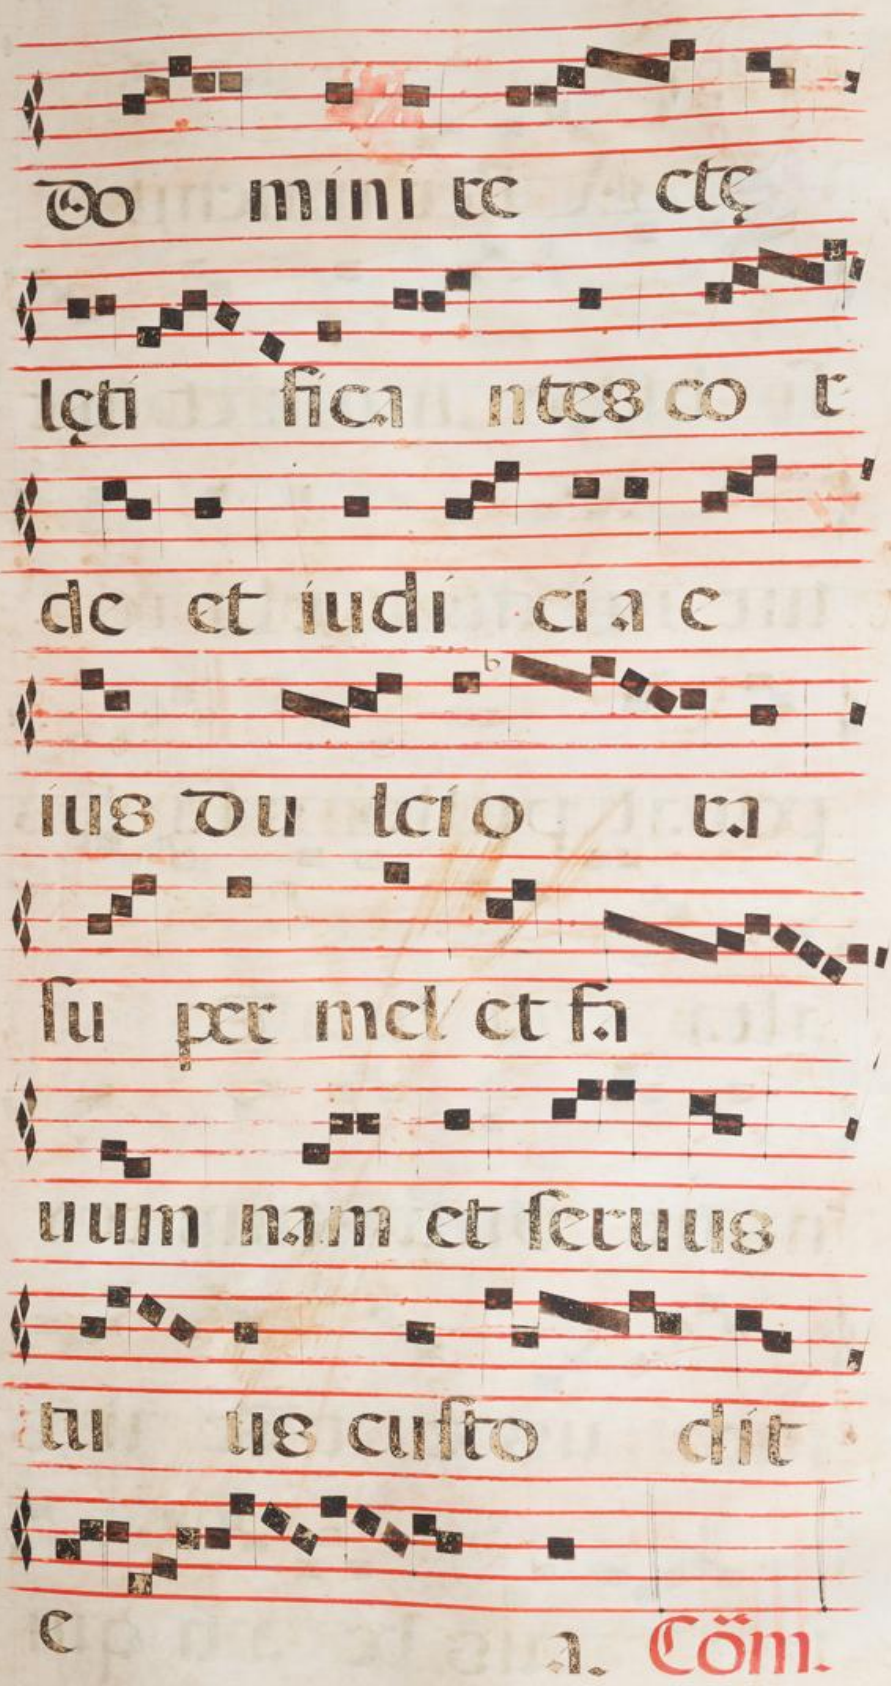 Do mini re ctę
lęti fica ntes co r
de et iudi ci a e
ius du lci o ra
ſu per mel et fa
uum nam et ſeruus
tu us cuſto dit
e a. Cöm.